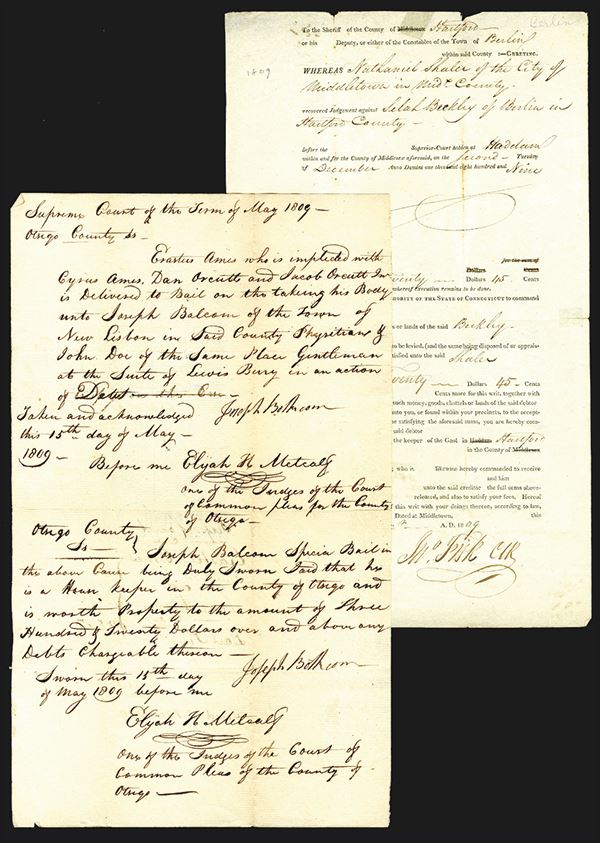 Berlin
To the Sheriff of the County of Middlesex Hartford
or his Deputy, or either of the Constables of the Town of Berlin
within said County :—GREETING.
1809
WHEREAS Nathaniel Shaler of the City of
Middletown in Midx. County.
recovered Judgement against Selah Beckley of Berlin in
Hartford County —
before the Superior Court holden at Haddam
within and for the County of Middlesex aforesaid, on the Second Tuesday
of December Anno Domini one thousand eight hundred and Nine
for the sum of
Dollars Cents
Twenty Dollars 45 Cents
whereof execution remains to be done.
AUTHORITY OF THE STATE OF CONNECTICUT to command
or lands of the said Beckley.
to be levied, (and the same being disposed of or apprais-
satisfied unto the said Shaler
Twenty Dollars 45 Cents
Cents more for this writ, together with
such money, goods, chattels or lands of the said debtor
unto you, or found within your precincts, to the accept-
satisfying the aforesaid sums, you are hereby com-
said debtor
the keeper of the Gaol in Haddam Hartford
in the County of Middlesex
who is likewise hereby commanded to receive
and him
unto the said creditor the full sums above-
released, and also to satisfy your fees. Hereof
of this writ with your doings thereon, according to law,
Dated at Middletown, this
A. D. 1809
Jno. Fisk Clk
Supreme Court of the Term of May 1809 —
Otsego County Ss —
Erastus Ames who is impleded with
Cyrus Ames, Dan Orcutt and Jacob Orcutt Jnr
is Delivered to Bail on the taking his Body
unto Joseph Balcom of the Town of
New Lisbon in Said County Physitian &
John Doe of the Same Place Gentleman
at the Suite of Lewis Bury in an action
of Debt on the Case
Taken and acknowledged
this 15th day of May —
1809 —
Joseph Balkcom
Before me Elijah H Metcalf
one of the Judges of the Court
of Common pleas for the County
of Otsego —
Otsego County
Ss — Joseph Balcom Special Bail in
the above Cause being Duly Sworn Said that he
is a House keeper in the County of Otsego and
is worth Property to the amount of Three
Hundred & Twenty Dollars over and above any
Debts Chargeable thereon —
Sworn this 15th day
of May 1809 before me
Joseph Balkcom
Elijah H Metcalf
One of the Judges of the Court of
Common Pleas of the County of
Otsego —